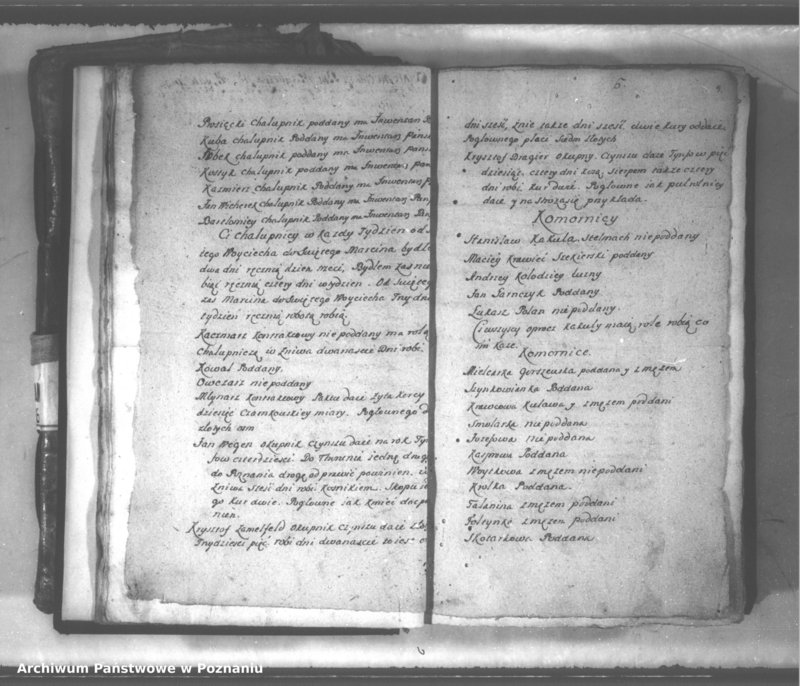 Chałupnik poddany ma Inwentarz
Kuba chałupnik Poddany ma Inwentarz Pański
Sobek chałupnik poddany ma Inwentarz Pański
Kostyk chałupnik poddany ma Inwentarz
Kazmierz chałupnik Poddany ma Inwentarz
Jan Wicherek chałupnik Poddany ma Inwentarz
Bartłomiey chałupnik Poddany ma Inwentarz Pań
Ci chałupnicy w kazdy Tydzien od S
tego Woyciecha do Swiętego Marcina bydłem
dwa dni ręczną dzien Bydłem zas
ręczną cztery dni w tydzien. Od Swięte
zas Marcina do Swiętego Woyciecha Trzy dni
tydzień ręczną robotą robią.
Kaczmarz kontraktowy nie poddany ma rolą
Chałupniczą w Zniwa dwanascie Dni robi.
Kowal Poddany.
Owczarz nie poddany
Młynarz kontraktowy Paktu daie żyta korcy
dziesięć Czarnkowskiey miary. Pogłownego
złotych osm
Jan Wegen Okupnik Czynszu daie na rok Tyn
fow czterdziesci. Do Thorunia iedną drogę
do Poznania drogę odprawić powinien. w
Zniwa szesć dni robi Skopu
go kur dwie. Pogłowne iak kmieć
nien.
Krysztof Lamelfeld Okupnik Czynszu daie
Trzydziesci pięć robi dni dwanascie to iest
6
9.
dni szesć, Znie także dni szesć dwie kury oddaie
Pogłownego płaci siedm złotych
Krysztof Bragier Okupny. Czynszu daie Tynfow pięć
dziesiąt, cztery dni Sierpem także cztery
dni robi kur dwie. Pogłowne iak pułrolnicy
daie y na Strożą przykłada.
Komornicy
Stanisław Kakuła Stelmach nie poddany
Maciey Krawiec Szekierski poddany
Andrzey Kołodziey luzny
Jan Garnczyk Poddany
Łukasz Polan nie poddany.
Ci wszyscy oprocz Kakuły maią role robią co
im kaze.
Komornice.
Mielcarka Gorszewska poddana y z męzem
Szynkowianka Poddana
Krawcowa Kulawa y z męzem poddani
Smolarka nie poddana
Jozefowa nie poddana
Kasprowa Poddana
Woytkowa z męzem nie poddani
Krolka Poddana.
Fałanina z męzem poddani
z męzem poddani
Skotarkowa Poddana
Archiwum Państwowe w Poznaniu